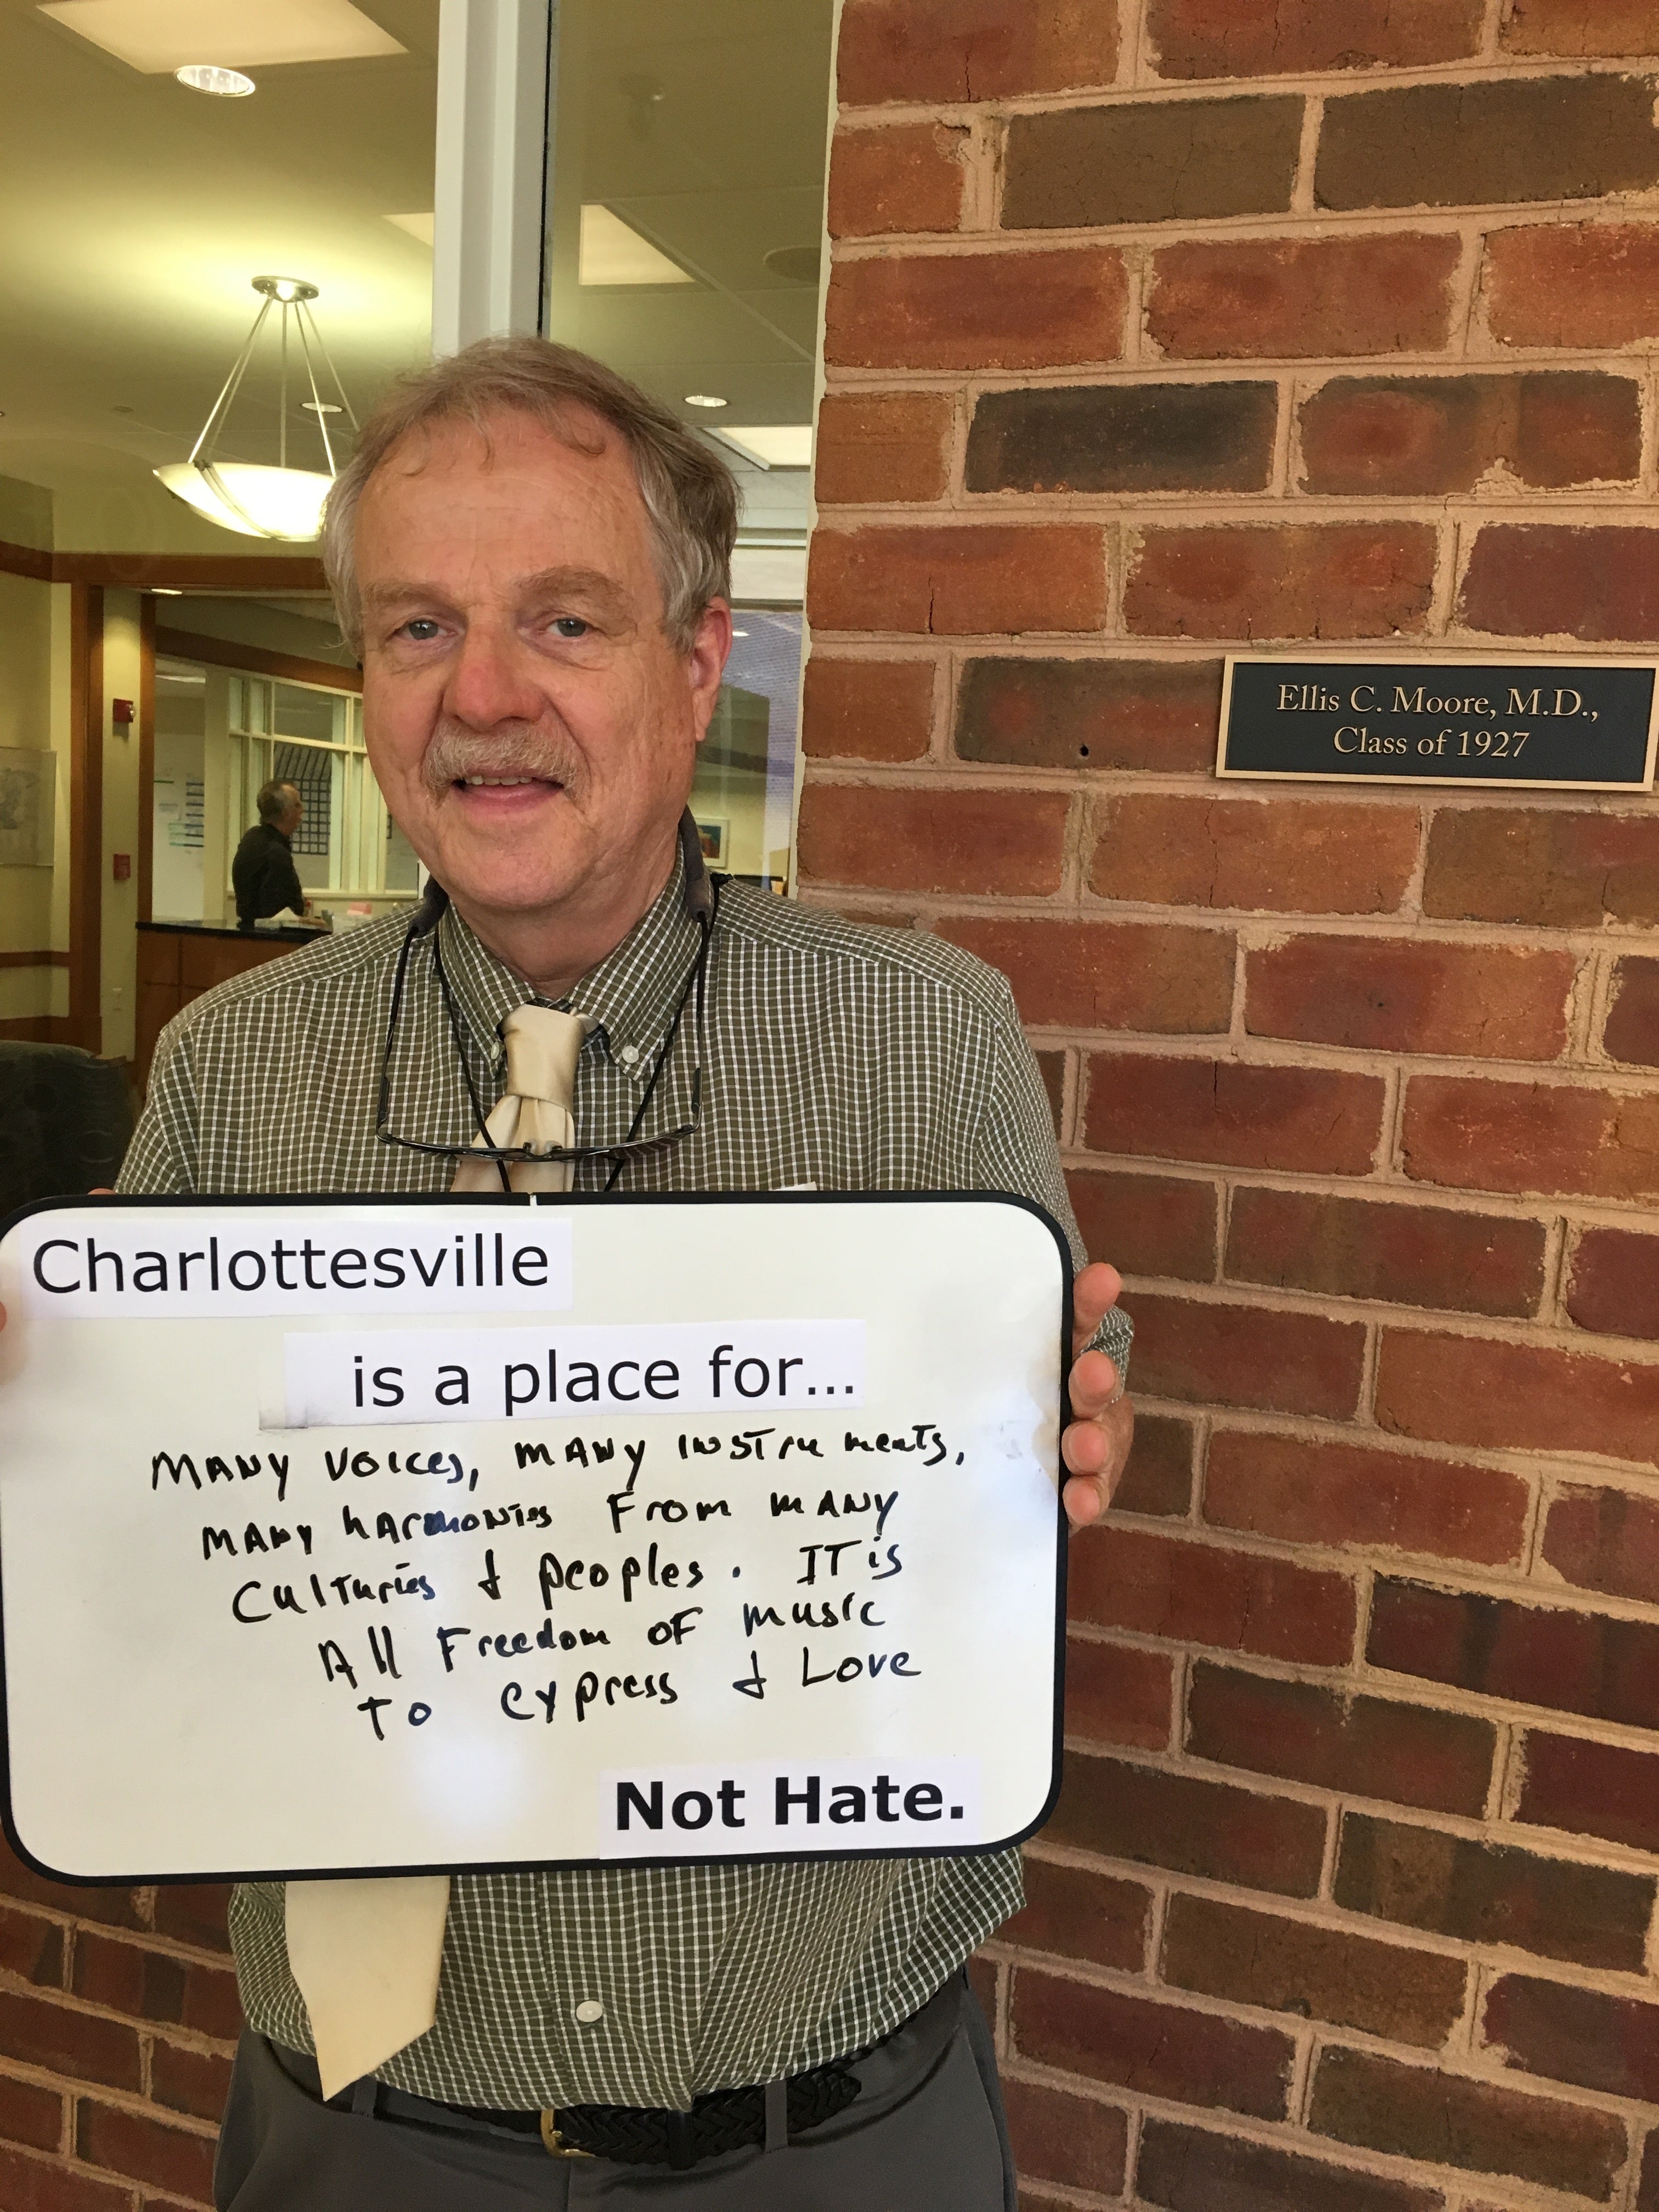 Ellis C. Moore, M.D.,
Class of 1927
Charlottesville
is a place for...
MANY VOICES, MANY INSTruments,
MANY hARmONIES From MANY
CulTuries & peoples. IT is
All Freedom OF music
To Cypress & Love
Not Hate.